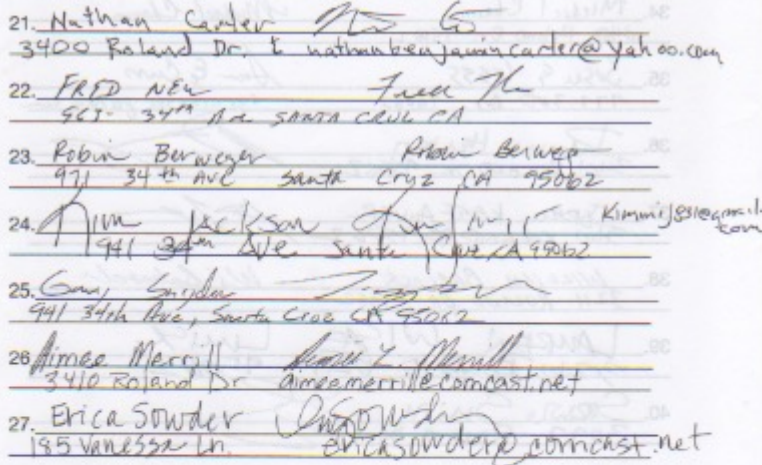 21. Nathan Carter
3400 Roland Dr. nathanbenjamincarter@yahoo.com
22. FRED NEW Fred
34th Ave SANTA CRUZ CA
23. Robin Berweger Robin Berweg
971 34th Ave Santa Cruz CA 95062
24. Kim Jackson
941 34th Ave Santa Cruz, CA 95062
25. Snyder
941 34th Ave, Santa Cruz CA 95062
26 Aimee Merrill Aimee L. Merrill
3410 Roland Dr aimeemerrill@comcast.net
27. Erica Sowder
185 Vanessa Ln. ericasowder@comcast.net